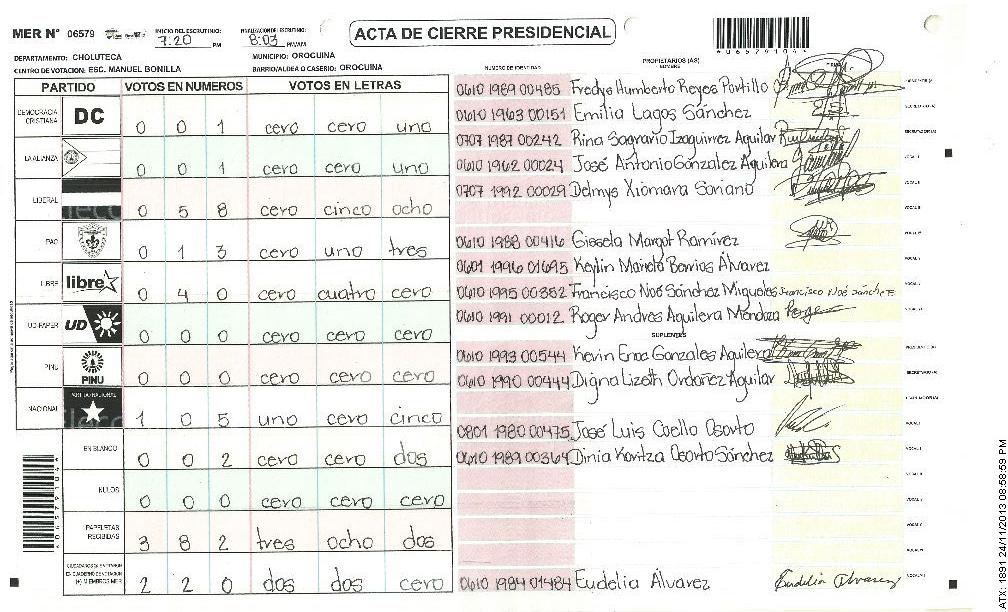 MER N° 06579
INICIO DEL ESCRUTINIO: 7:20 PM
FINALIZACION DEL ESCRUTINIO: 8:03 PM/AM
ACTA DE CIERRE PRESIDENCIAL
DEPARTAMENTO: CHOLUTECA
MUNICIPIO: OROCUINA
CENTRO DE VOTACION: ESC. MANUEL BONILLA
BARRIO/ALDEA O CASERIO: OROCUINA
PARTIDO VOTOS EN NUMEROS VOTOS EN LETRAS
DEMOCRACIA CRISTIANA DC 0 0 1 cero cero uno
LA ALIANZA 0 0 1 cero cero uno
LIBERAL 0 5 8 cero cinco ocho
PAC 0 1 3 cero uno tres
LIBRE libre 0 4 0 cero cuatro cero
UD-FAPER UD 0 0 0 cero cero cero
PINU PINU 0 0 0 cero cero cero
NACIONAL 1 0 5 uno cero cinco
EN BLANCO 0 0 2 cero cero dos
NULOS 0 0 0 cero cero cero
PAPELETAS RECIBIDAS 3 8 2 tres ocho dos
(+) MIEMBROS MER 2 2 0 dos dos cero
NUMERO DE IDENTIDAD
PROPIETARIOS (AS)
NOMBRE
FIRMA
0610 1989 00485 Fredys Humberto Reyes Portillo
0610 1963 00151 Emilia Lagos Sánchez
0707 1987 00242 Rina Sagrario Izaguirrez Aguilar
0610 1962 00024 José Antonio Gonzalez Aguilera
0707 1992 00029 Delmys Xiomara Soriano
0610 1988 00416 Gissela Margot Ramírez
0601 1996 01695 Keylin Mariela Barrios Álvarez
0610 1995 00352 Francisco Noé Sánchez Migueles Francisco Noé Sánchez
0610 1991 00012 Roger Andres Aguilera Mendoza Roger
SUPLENTES
0610 1993 00544 Kevin Enoc Gonzales Aguilera
0610 1990 00444 Digna Lizeth Ordoñez Aguilar
0801 1980 00475 José Luis Coello Osorto
0610 1989 00364 Dinia Karitza Osorto Sánchez
0610 1984 01484 Eudelia Álvarez Eudelia Alvarez
ATX: 1891 24/11/2013 08:58:59 PM